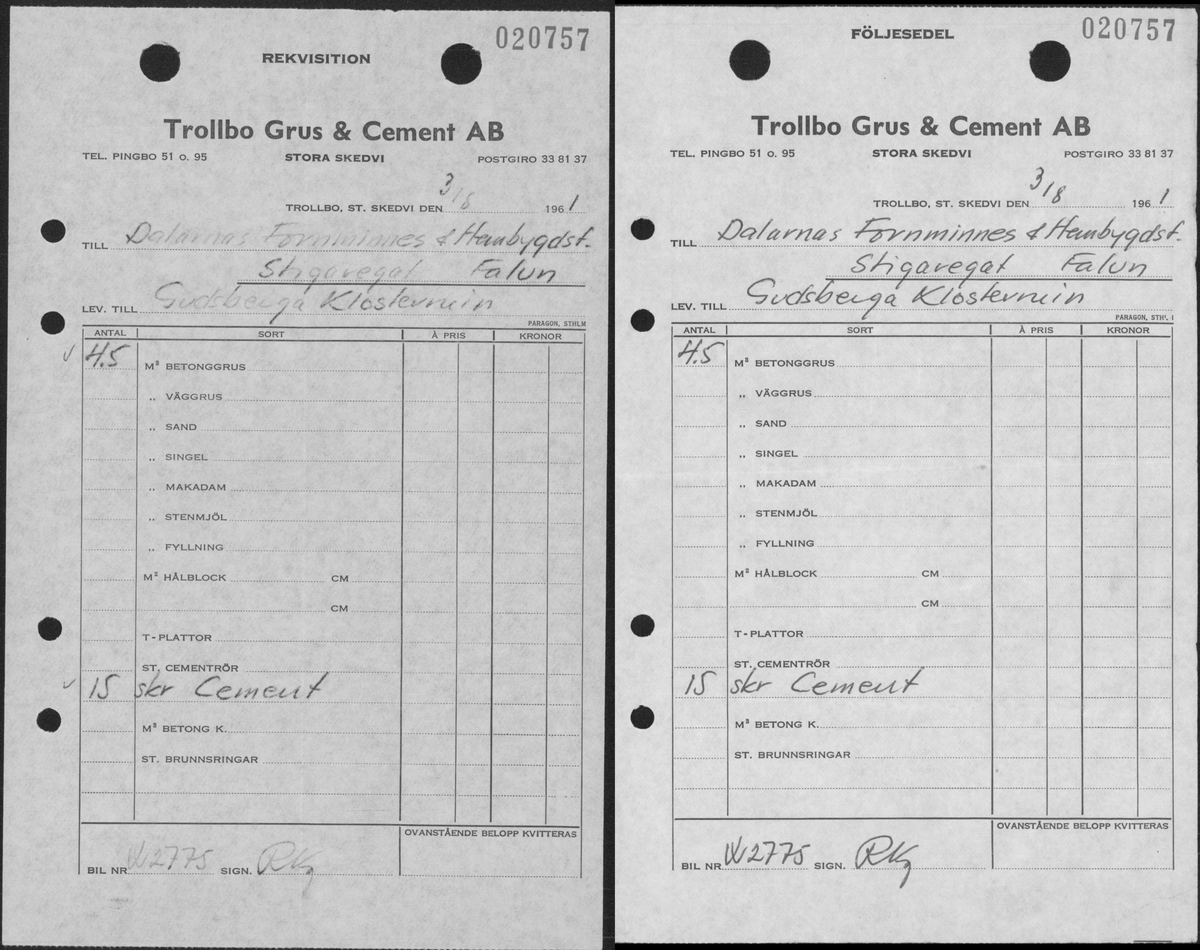 020757
REKVISITION
Trollbo Grus & Cement AB
TEL. PINGBO 51 o. 95 STORA SKEDVI POSTGIRO 33 81 37
TROLLBO, ST. SKEDVI DEN 3/8 1961
TILL Dalarnas Fornminnes & Hembygdsf.
Stigaregat Falun
LEV. TILL Gudsberga Klosterruin
PARAGON, STHLM
ANTAL SORT À PRIS KRONOR
4.5 M³ BETONGGRUS
,, VÄGGRUS
,, SAND
,, SINGEL
,, MAKADAM
,, STENMJÖL
,, FYLLNING
M² HÅLBLOCK CM
CM
T-PLATTOR
ST. CEMENTRÖR
15 skr Cement
M³ BETONG K.
ST. BRUNNSRINGAR
OVANSTÅENDE BELOPP KVITTERAS
BIL NR W2775 SIGN. RKg
020757
FÖLJESEDEL
Trollbo Grus & Cement AB
TEL. PINGBO 51 o. 95 STORA SKEDVI POSTGIRO 33 81 37
TROLLBO, ST. SKEDVI DEN 3/8 1961
TILL Dalarnas Fornminnes & Hembygdsf.
Stigaregat Falun
LEV. TILL Gudsberga Klosterruin
PARAGON, STHL
ANTAL SORT À PRIS KRONOR
4.5 M³ BETONGGRUS
,, VÄGGRUS
,, SAND
,, SINGEL
,, MAKADAM
,, STENMJÖL
,, FYLLNING
M² HÅLBLOCK CM
CM
T-PLATTOR
ST. CEMENTRÖR
15 skr Cement
M³ BETONG K.
ST. BRUNNSRINGAR
OVANSTÅENDE BELOPP KVITTERAS
BIL NR W2775 SIGN. RKg